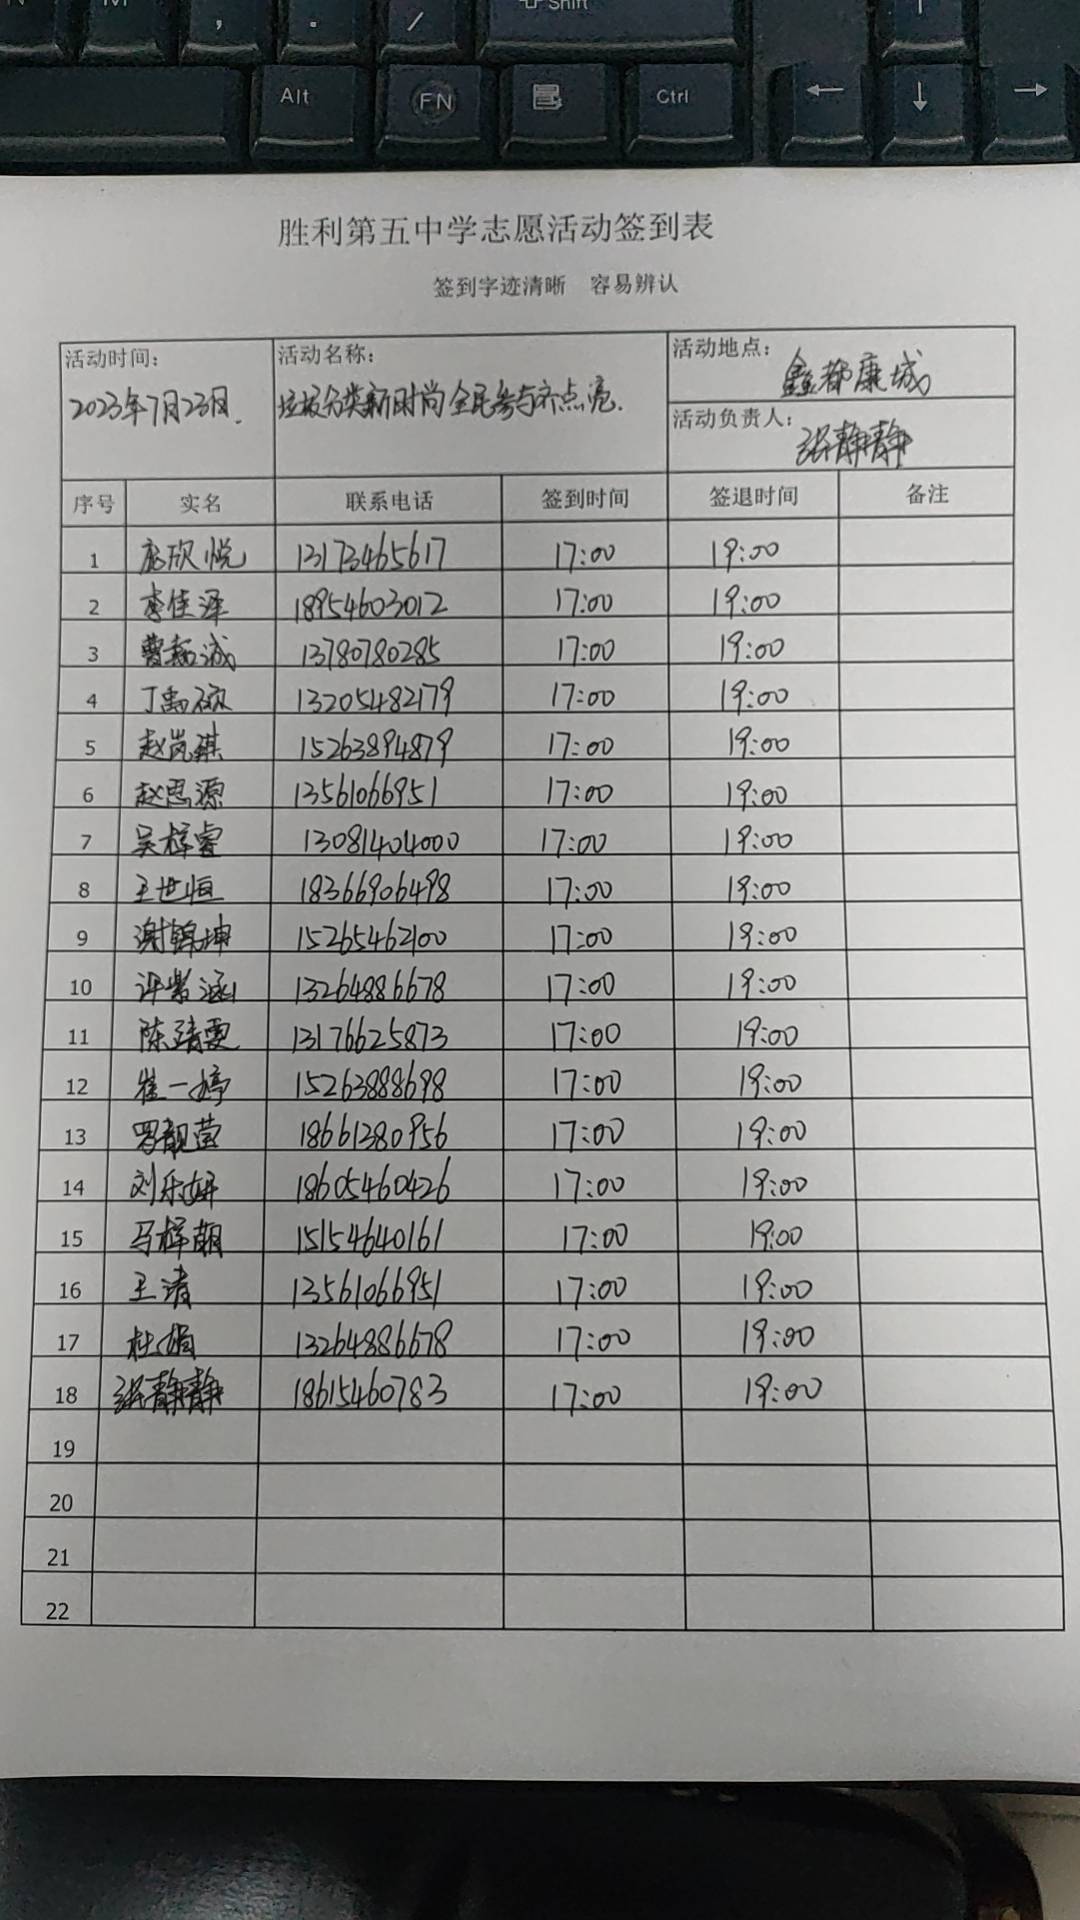 Shift
Alt
FN
Ctrl
胜利第五中学志愿活动签到表
签到字迹清晰 容易辨认
活动时间: 活动名称: 活动地点: 鑫都康城
2023年7月23日. 垃圾分类新时尚全民参与齐点亮.
活动负责人: 张静静
序号 实名 联系电话 签到时间 签退时间 备注
1 庞欣悦 13173465617 17:00 19:00
2 李佳泽 18954603012 17:00 19:00
3 曹 诚 13780780285 17:00 19:00
4 丁禹硕 13205482179 17:00 19:00
5 赵岚祺 15263894879 17:00 19:00
6 赵思源 13561066951 17:00 19:00
7 吴梓睿 13081404000 17:00 19:00
8 王世恒 18366906498 17:00 19:00
9 谢锦坤 15265462100 17:00 19:00
10 许紫涵 13264886678 17:00 19:00
11 陈靖雯 13176625873 17:00 19:00
12 崔一婷 15263888698 17:00 19:00
13 罗靓莹 18661380956 17:00 19:00
14 刘乐妍 18605460426 17:00 19:00
15 马梓萌 15154640161 17:00 19:00
16 王清 13561066951 17:00 19:00
17 杜娟 13264886678 17:00 19:00
18 张静静 18615460783 17:00 19:00
19
20
21
22